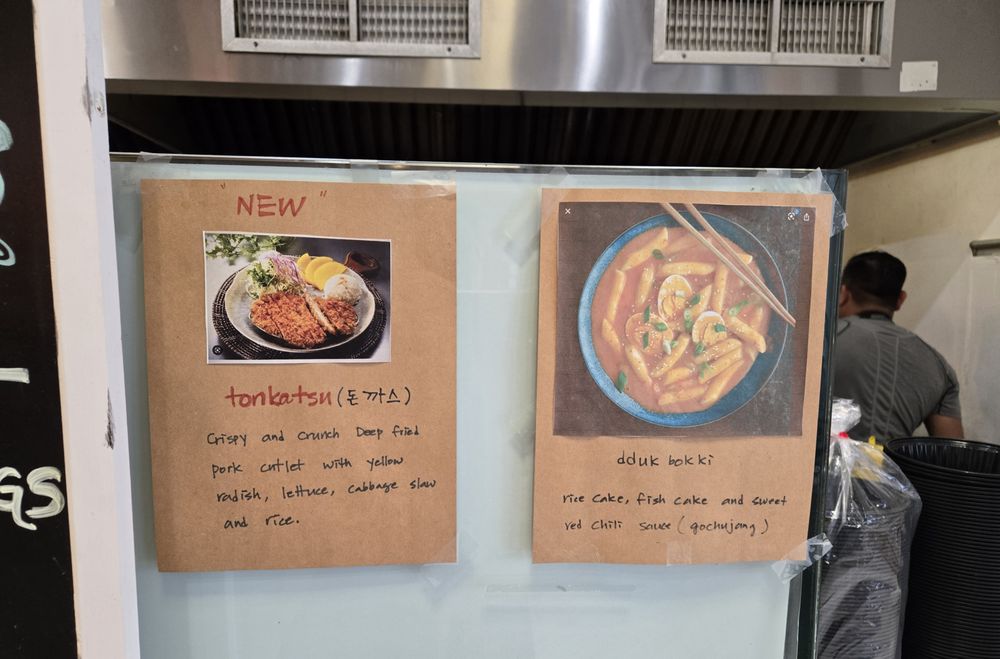 "NEW"
tonkatsu (돈까스)
Crispy and crunch Deep fried
pork cutlet with yellow
radish, lettuce, cabbage slaw
and rice.
dduk bokki
rice cake, fish cake and sweet
red chili sauce (gochujang)
GS